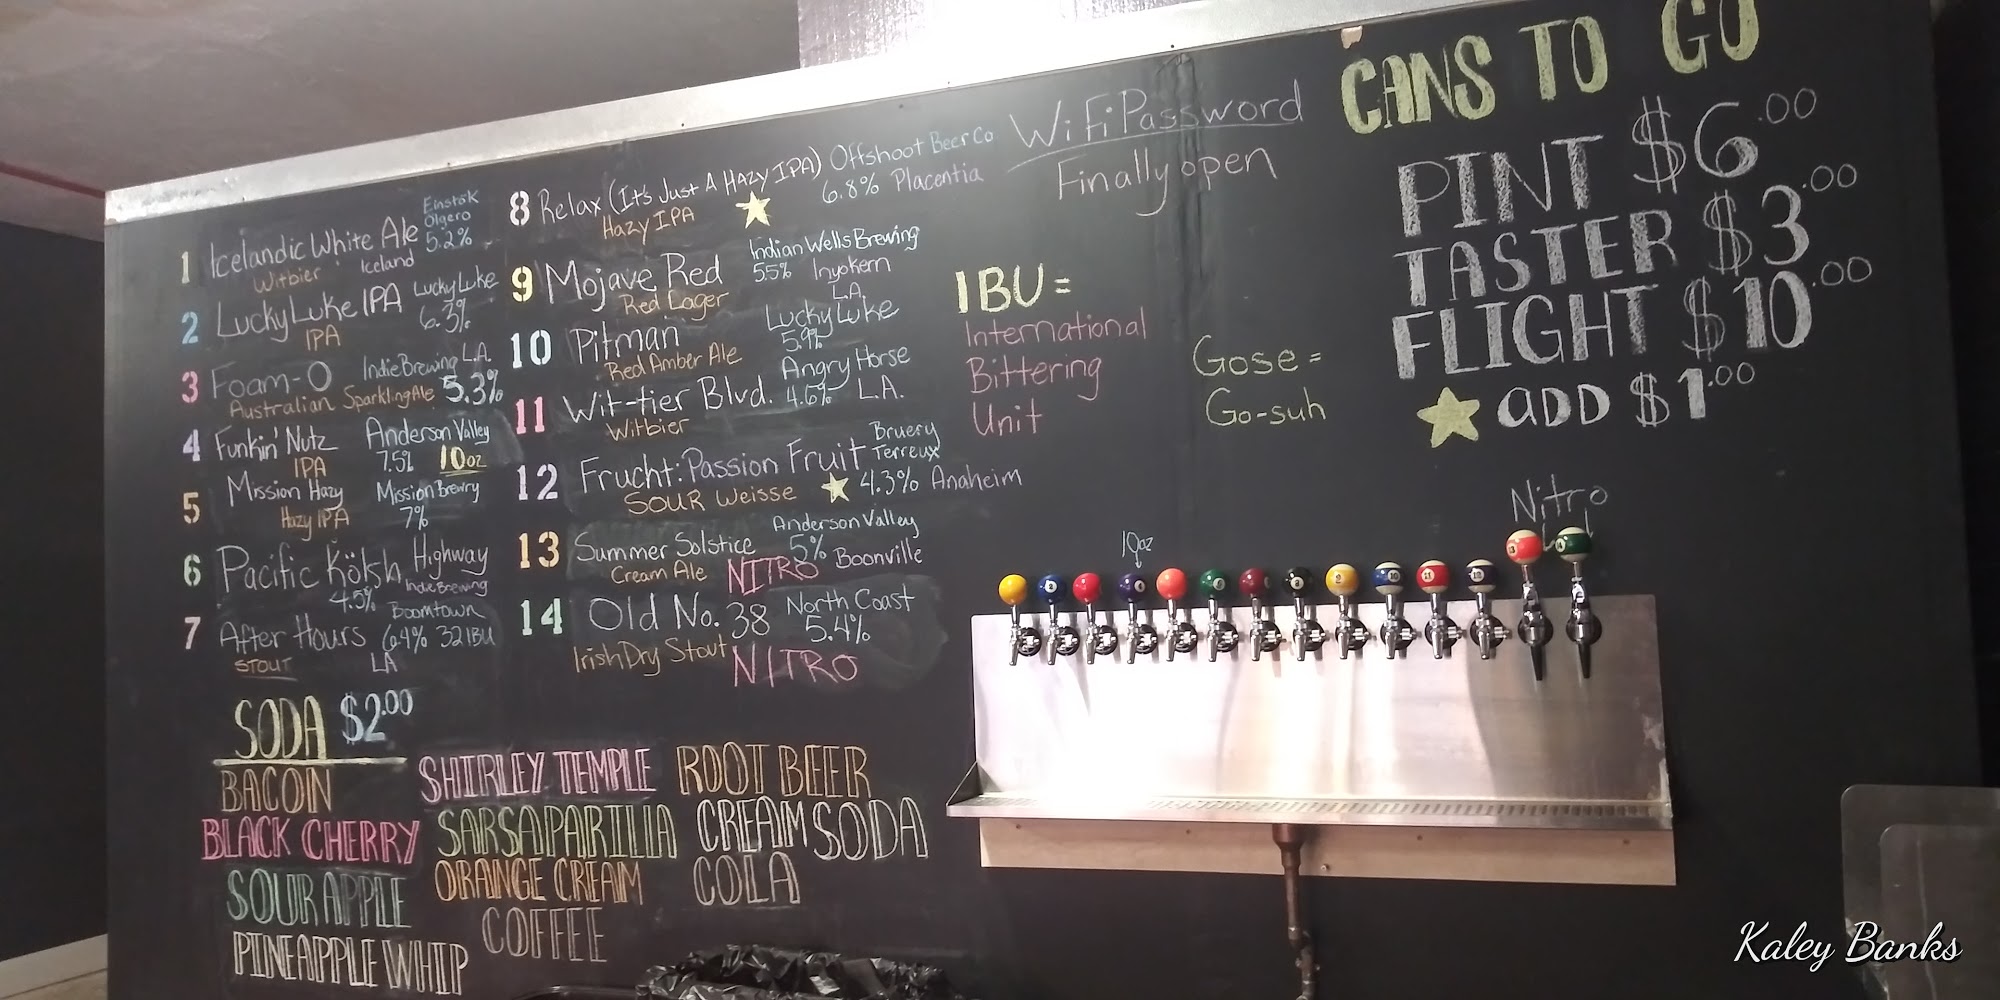 CANS TO GO
PINT $6.00
TASTER $3.00
FLIGHT $10.00
ADD $1.00
WiFi Password
Finally open
1 Icelandic White Ale Einstök Olgero 5.2%
Witbier Iceland
2 Lucky Luke IPA Lucky Luke
IPA 6.3%
3 Foam-O Indie Brewing L.A.
Australian Sparkling Ale 5.3%
4 Funkin' Nutz Anderson Valley
IPA 7.5% 10oz
5 Mission Hazy Mission Brewry
Hazy IPA 7%
6 Pacific Kölsh Highway
4.5% Indie Brewing
7 After Hours Boomtown 6.4% 32 IBU
STOUT LA
8 Relax (It's Just A Hazy IPA) Offshoot Beer Co
Hazy IPA 6.8% Placentia
9 Mojave Red Indian Wells Brewing
Red Lager 55% Inyokern
10 Pitman L.A. Lucky Luke
Red Amber Ale 5.9%
11 Wit-tier Blvd. Angry Horse
Witbier 4.6% L.A.
12 Frucht: Passion Fruit Bruery Terreux
SOUR Weisse 4.3% Anaheim
13 Summer Solstice Anderson Valley
Cream Ale NITRO 5% Boonville
14 Old No. 38 North Coast
Irish Dry Stout NITRO 5.4%
IBU =
International
Bittering
Unit
Gose =
Go-suh
Nitro
10oz
SODA $2.00
BACON
BLACK CHERRY
SOUR APPLE
PINEAPPLE WHIP
SHIRLEY TEMPLE
SARSAPARILLA
ORANGE CREAM
COFFEE
ROOT BEER
CREAM SODA
COLA
Kaley Banks